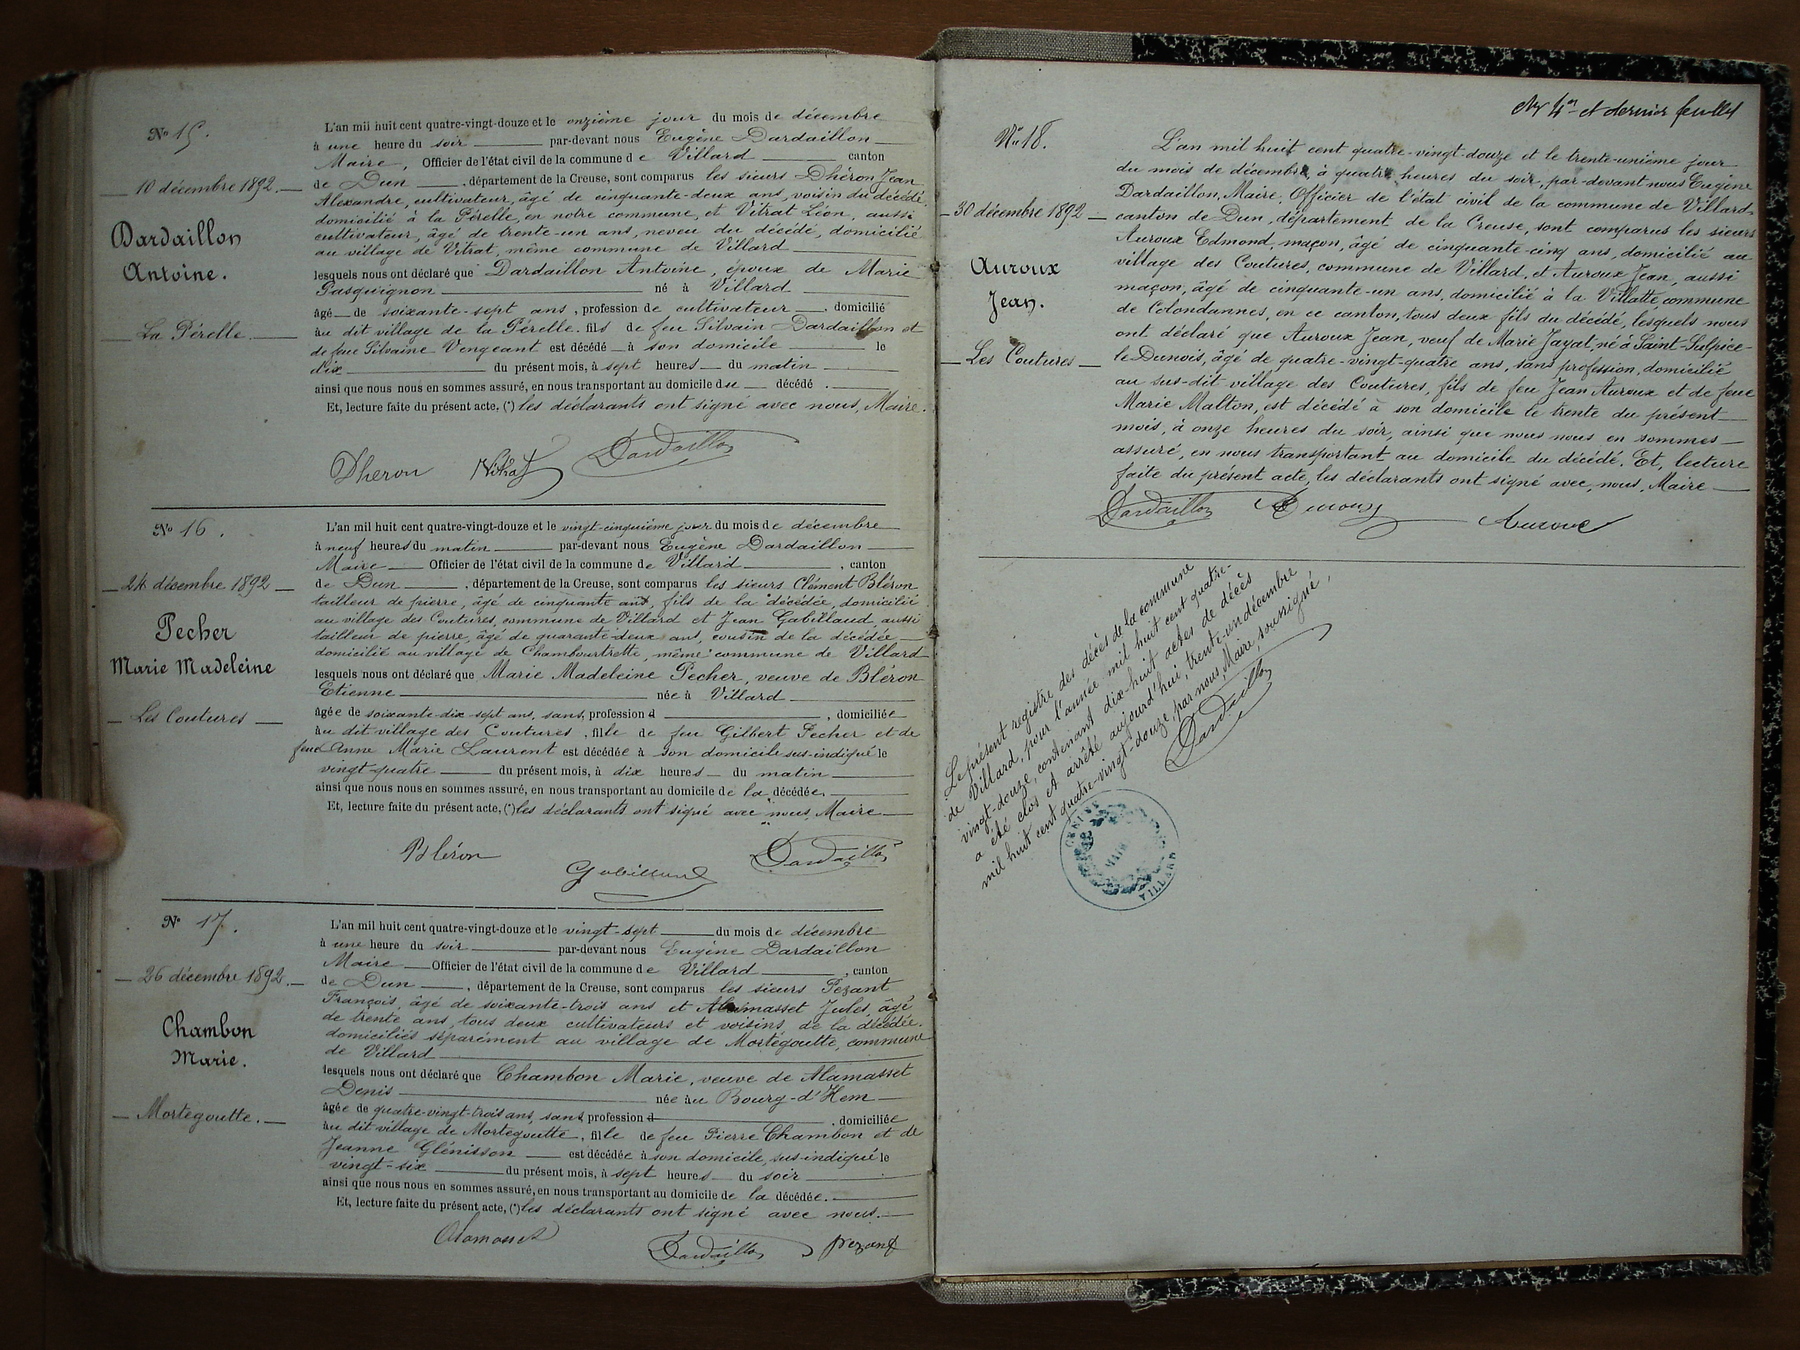 Nº 15.
10 décembre 1892.
Dardaillon
Antoine.
La Pérelle
L'an mil huit cent quatre-vingt-douze et le onzième jour du mois de décembre
à une heure du soir par-devant nous Eugène Dardaillon
Maire, Officier de l'état civil de la commune de Villard canton
de Dun, département de la Creuse, sont comparus les sieurs Dhéron Jean
Alexandre, cultivateur, âgé de cinquante-deux ans, voisin du décédé,
domicilié à la Pérelle, en notre commune, et Vitrat Léon, aussi
cultivateur, âgé de trente-un ans, neveu du décédé, domicilié
au village de Vitrat, même commune de Villard
lesquels nous ont déclaré que Dardaillon Antoine, époux de Marie
Pasquignon né à Villard
âgé de soixante-sept ans, profession de cultivateur, domicilié
au dit village de la Pérelle. fils de feu Silvain Dardaillon et
de feue Silvaine Vengeant est décédé à son domicile le
dix du présent mois, à sept heures du matin
ainsi que nous nous en sommes assuré, en nous transportant au domicile du décédé.
Et, lecture faite du présent acte, (*) les déclarants ont signé avec nous, Maire.
Dheron Vitrat Dardaillon
Nº 16.
24 décembre 1892
Pecher
Marie Madeleine
Les Coutures
L'an mil huit cent quatre-vingt-douze et le vingt-cinquième jour du mois de décembre
à neuf heures du matin par-devant nous Eugène Dardaillon
Maire Officier de l'état civil de la commune de Villard, canton
de Dun, département de la Creuse, sont comparus les sieurs Clément Bléron
tailleur de pierre, âgé de cinquante ans, fils de la décédée, domicilié
au village des Coutures, commune de Villard et Jean Gabillaud, aussi
tailleur de pierre, âgé de quarante-deux ans, cousin de la décédée
domicilié au village de Chambourtrette, même commune de Villard
lesquels nous ont déclaré que Marie Madeleine Pecher, veuve de Bléron
Etienne née à Villard
âgée de soixante-dix-sept ans, sans profession d, domiciliée
au dit village des Coutures, fille de feu Gilbert Pecher et de
feue Anne Marie Laurent est décédée à son domicile sus-indiqué le
vingt-quatre du présent mois, à dix heures du matin
ainsi que nous nous en sommes assuré, en nous transportant au domicile de la décédée.
Et, lecture faite du présent acte, (*) les déclarants ont signé avec nous, Maire
Bléron
Gabillaud
Dardaillon
Nº 17.
26 décembre 1892.
Chambon
Marie.
Mortegoutte.
L'an mil huit cent quatre-vingt-douze et le vingt-sept du mois de décembre
à une heure du soir par-devant nous Eugène Dardaillon
Maire Officier de l'état civil de la commune de Villard, canton
de Dun, département de la Creuse, sont comparus les sieurs Pezant
François, âgé de soixante-trois ans et Alamasset Jules, âgé
de trente ans, tous deux cultivateurs et voisins de la décédée.
domiciliés séparément au village de Mortegoutte, commune
de Villard
lesquels nous ont déclaré que Chambon Marie, veuve de Alamasset
Denis née au Bourg-d'Hem
âgée de quatre-vingt-trois ans, sans profession d, domiciliée
au dit village de Mortegoutte, fille de feu Pierre Chambon et de
Jeanne Glénisson est décédée à son domicile, sus-indiqué le
vingt-six du présent mois, à sept heures du soir
ainsi que nous nous en sommes assuré, en nous transportant au domicile de la décédée.
Et, lecture faite du présent acte, (*) les déclarants ont signé avec nous.
Alamasset
Dardaillon
Pezant
et dernier feuillet
Nº 18.
30 décembre 1892
Auroux
Jean.
Les Coutures
L'an mil huit cent quatre-vingt-douze et le trente-unième jour
du mois de décembre, à quatre heures du soir, par-devant nous Eugène
Dardaillon, Maire, Officier de l'état civil de la commune de Villard,
canton de Dun, département de la Creuse, sont comparus les sieurs
Auroux Edmond, maçon, âgé de cinquante-cinq ans, domicilié au
village des Coutures, commune de Villard, et Auroux Jean, aussi
maçon, âgé de cinquante-un ans, domicilié à la Villatte commune
de Colondannes, en ce canton, tous deux fils du décédé, lesquels nous
ont déclaré que Auroux Jean, veuf de Marie Jayat, né à Saint-Sulpice-
le-Dunois, âgé de quatre-vingt-quatre ans, sans profession, domicilié
au sus-dit village des Coutures, fils de feu Jean Auroux et de feue
Marie Malton, est décédé à son domicile le trente du présent
mois, à onze heures du soir, ainsi que nous nous en sommes
assuré, en nous transportant au domicile du décédé. Et, lecture
faite du présent acte, les déclarants ont signé avec, nous, Maire
Dardaillon Auroux Auroux
Le présent registre des décès de la commune
de Villard, pour l'année mil huit cent quatre-
vingt-douze, contenant dix-huit actes de décès
a été clos et arrêté aujourd'hui, trente-un décembre
mil huit cent quatre-vingt-douze, par nous, Maire, soussigné,
Dardaillon
MAIRIE
VILLARD